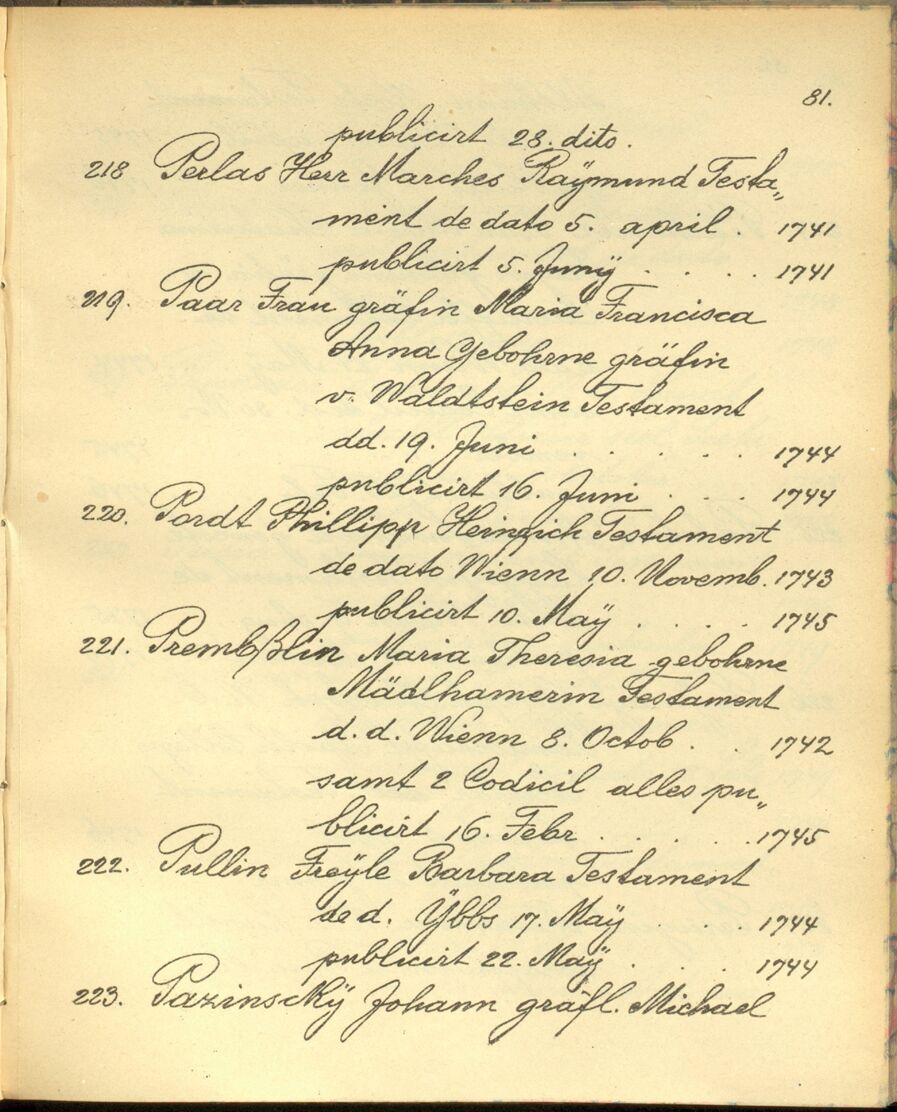 81.
publicirt 28. dito.
218 Perlas Herr Marches Raÿmund Testa„
ment de dato 5. april . 1741
publicirt 5. Junÿ . . . . 1741
219. Paar Frau gräfin Maria Francisca
Anna Gebohrne gräfin
v. Waldtstein Testament
dd. 19. Juni . . . . . 1744
publicirt 16. Juni . . . 1744
220. Pordt Phillipp Heinrich Testament
de dato Wienn 10. Novemb. 1743
publicirt 10. Maÿ . . . . 1745
221. Prembßlin Maria Theresia gebohrne
Mädlhamerin Testament
d. d. Wienn 8. Octob . . 1742
samt 2 Codicil alles pu„
blicirt 16. Febr . . . . . 1745
222. Pullin Freÿle Barbara Testament
de d. Ÿbbs 17. Maÿ . . . . 1744
publicirt 22. Maÿ . . . . 1744
223. Pazinsckÿ Johann gräfl. Michael